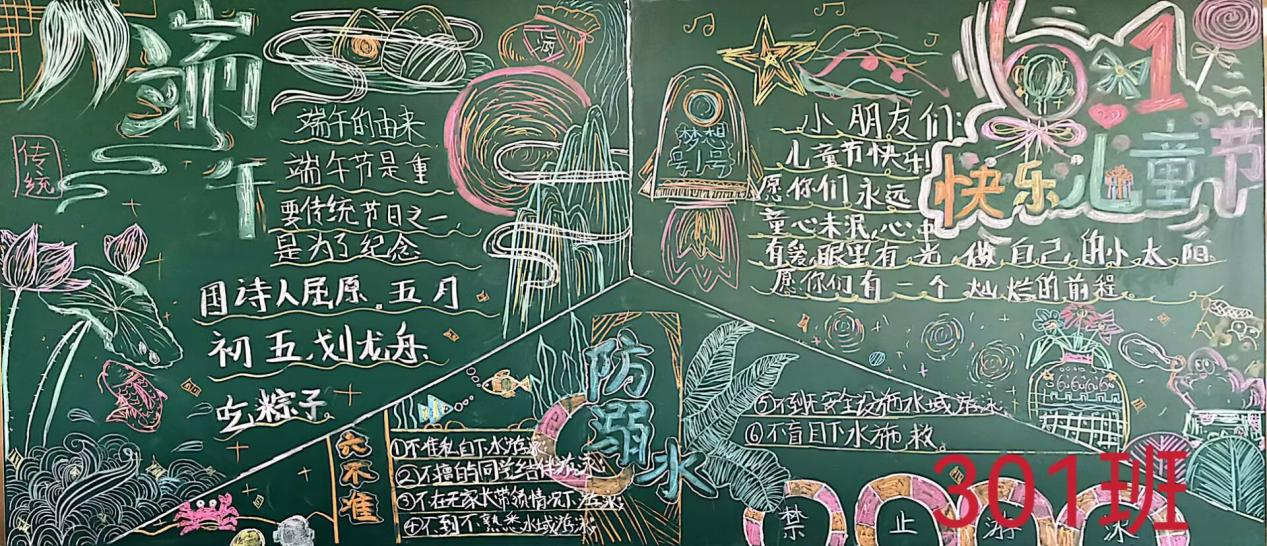 端午
传统
端午的由来
端午节是重
要传统节日之一
是为了纪念
国诗人屈原。五月
初五,划龙舟
吃粽子
梦想
号1号
小朋友们:
儿童节快乐!
愿你们永远
童心未泯,心中
有爱,眼里有光,做自己的小太阳
愿你们有一个灿烂的前程
6·1
快乐儿童节
防溺水
六不准
①不准私自下水游泳
②不擅自同学结伴游泳
③不在无家长带领情况下游泳
④不到不熟悉水域游泳
⑤不到无安全设施水域游泳
⑥不盲目下水施救。
禁止游泳
301班